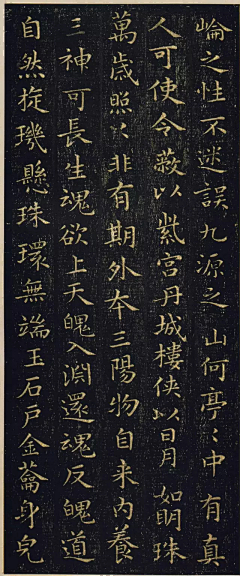 崘之性不迷誤九源之山何亭〻中有真
人可使令蔽以紫宫丹城樓俠以日月如明珠
萬歲照〻非有期外本三陽物自来内養
三神可長生魂欲上天魄入淵還魂反魄道
自然㨁璣懸珠環無端玉石戶金籥身皃